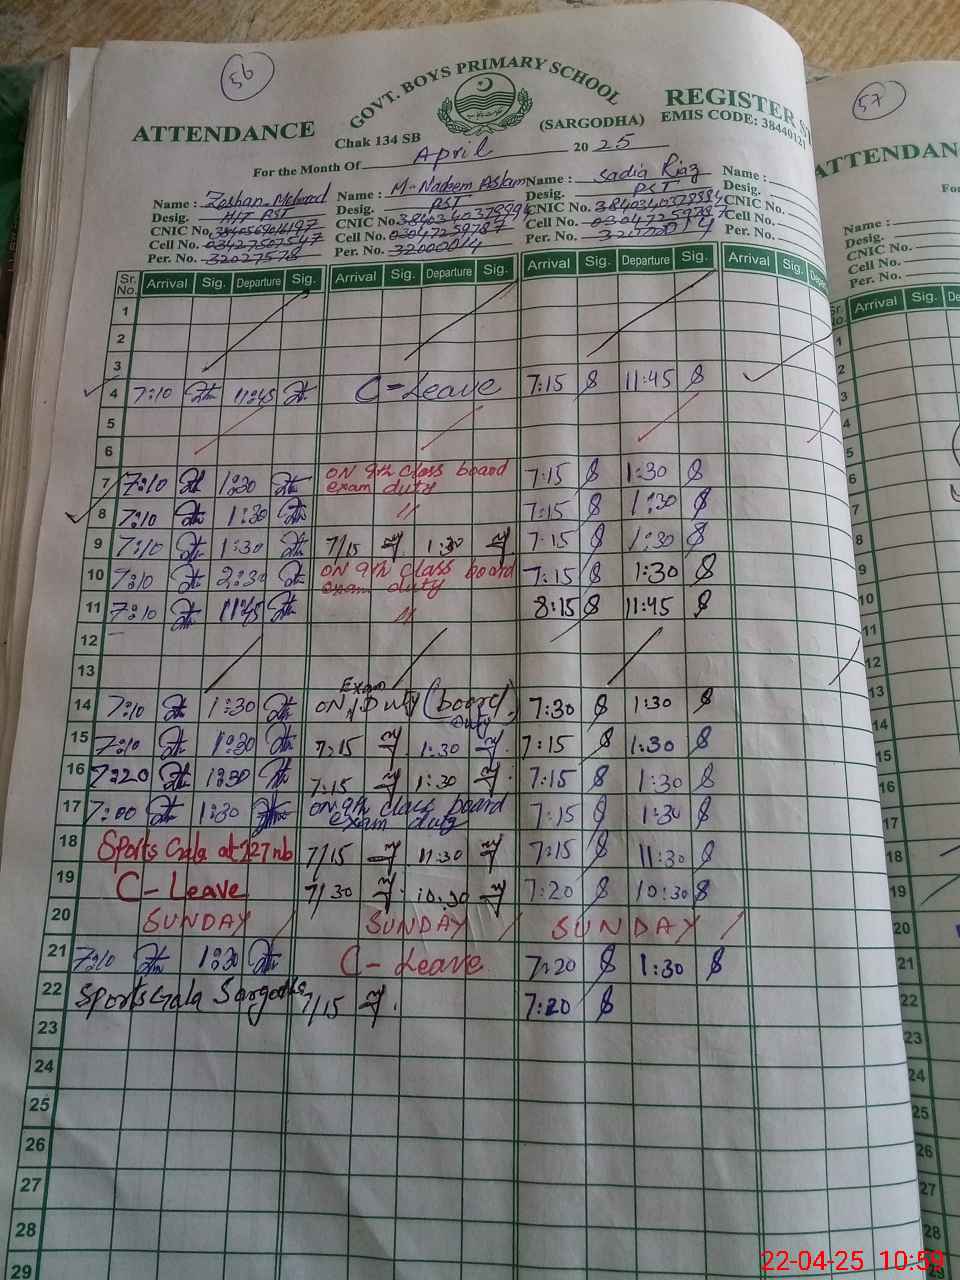 56
GOVT. BOYS PRIMARY SCHOOL
ATTENDANCE
REGISTER
Chak 134 SB
(SARGODHA)
EMIS CODE: 38440121
For the Month Of April 20 25
Name : Name : M-Nadeem Aslam Name : Sadia Riaz Name :
Desig. PST Desig. PST Desig. PST Desig.
CNIC No. CNIC No. CNIC No. CNIC No.
Cell No. 03427507547 Cell No. 03047259787 Cell No. Cell No.
Per. No. 32027578 Per. No. 32000014 Per. No. Per. No.
Sr. No. Arrival Sig. Departure Sig. Arrival Sig. Departure Sig. Arrival Sig. Departure Sig. Arrival Sig.
1
2
3
4 7:10 11:45 C-Leave 7:15 11:45
5
6
7 7:10 1:30 ON 9th class board exam duty 7:15 1:30
8 7:10 1:30 " 7:15 1:30
9 7:10 1:30 7/15 1:30 7:15 1:30
10 7:10 2:30 ON 9th class board exam duty 7:15 1:30
11 7:10 11:45 " 8:15 11:45
12
13
14 7:10 1:30 ON Exam Duty (board) duty 7:30 1:30
15 7:10 1:30 7:15 1:30 7:15 1:30
16 7:20 1:30 7:15 1:30 7:15 1:30
17 7:00 1:30 on 9th class board exam duty 7:15 1:30
18 Sports Gala at 127 nb 7/15 11:30 7:15 11:30
19 C-Leave 7/30 10:30 7:20 10:30
20 SUNDAY SUNDAY SUNDAY
21 7:10 1:30 C-Leave 7:20 1:30
22 Sports Gala Sargodha 7/15 7:20
23
24
25
26
27
28
29
57
ATTENDAN
Name :
Desig.
CNIC No.
Cell No.
Per. No.
Arrival Sig.
1
2
3
4
5
6
7
8
9
10
11
12
13
14
15
16
17
18
19
20
21
22
23
24
25
26
27
28
22-04-25 10:59